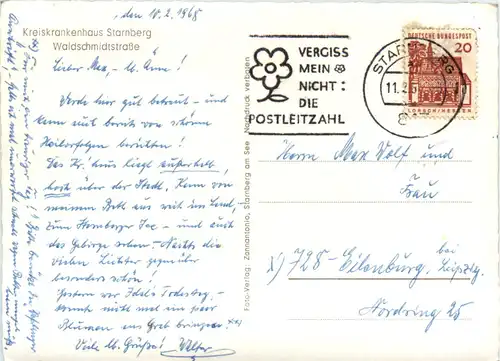 den 10.2.1968
Kreiskrankenhaus Starnberg
Waldschmidtstraße
Lieber Max, – lb. Anne!
Werde hier gut betreut – und
kann auch bereits von schönen
Heilerfolgen berichten!
Das Kr. haus liegt außerhalb,
hoch über der Stadt. Kann von
meinem Bett aus weit ins Land,
zum Starnberger See – und auch
das Gebirge sehen – Nachts die
vielen Lichter gegenüber
besonders schön!
Gestern war Todestag –
konnte nicht mal ein paar
Blumen ans Grab bringen
Viele lb. Grüße! Walter
Foto-Verlag: Zannantonio, Starnberg am See Nachdruck verboten
VERGISS
MEIN
NICHT:
DIE
POSTLEITZAHL
STARNBERG
11.2.6
DEUTSCHE BUNDESPOST
20
LORSCH/HESSEN
Herrn Max Wolf und
Frau
x) 728-Eilenburg, bei
Leipzig.
Nordring 25